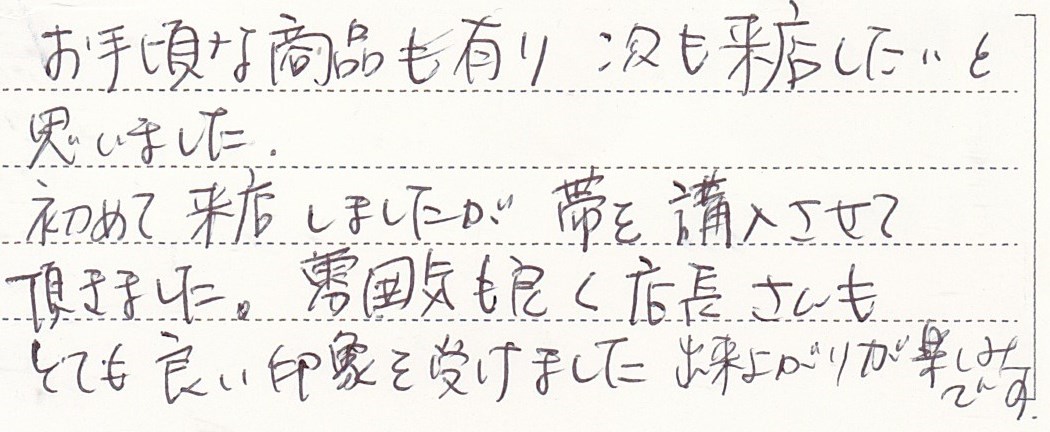 お手頃な商品も有り 次も来店したいと
思いました.
初めて来店しましたが 帯を講入させて
頂きました。雰囲気も良く店長さんも
とても良い印象を受けました 出来上がりが楽しみ
です.